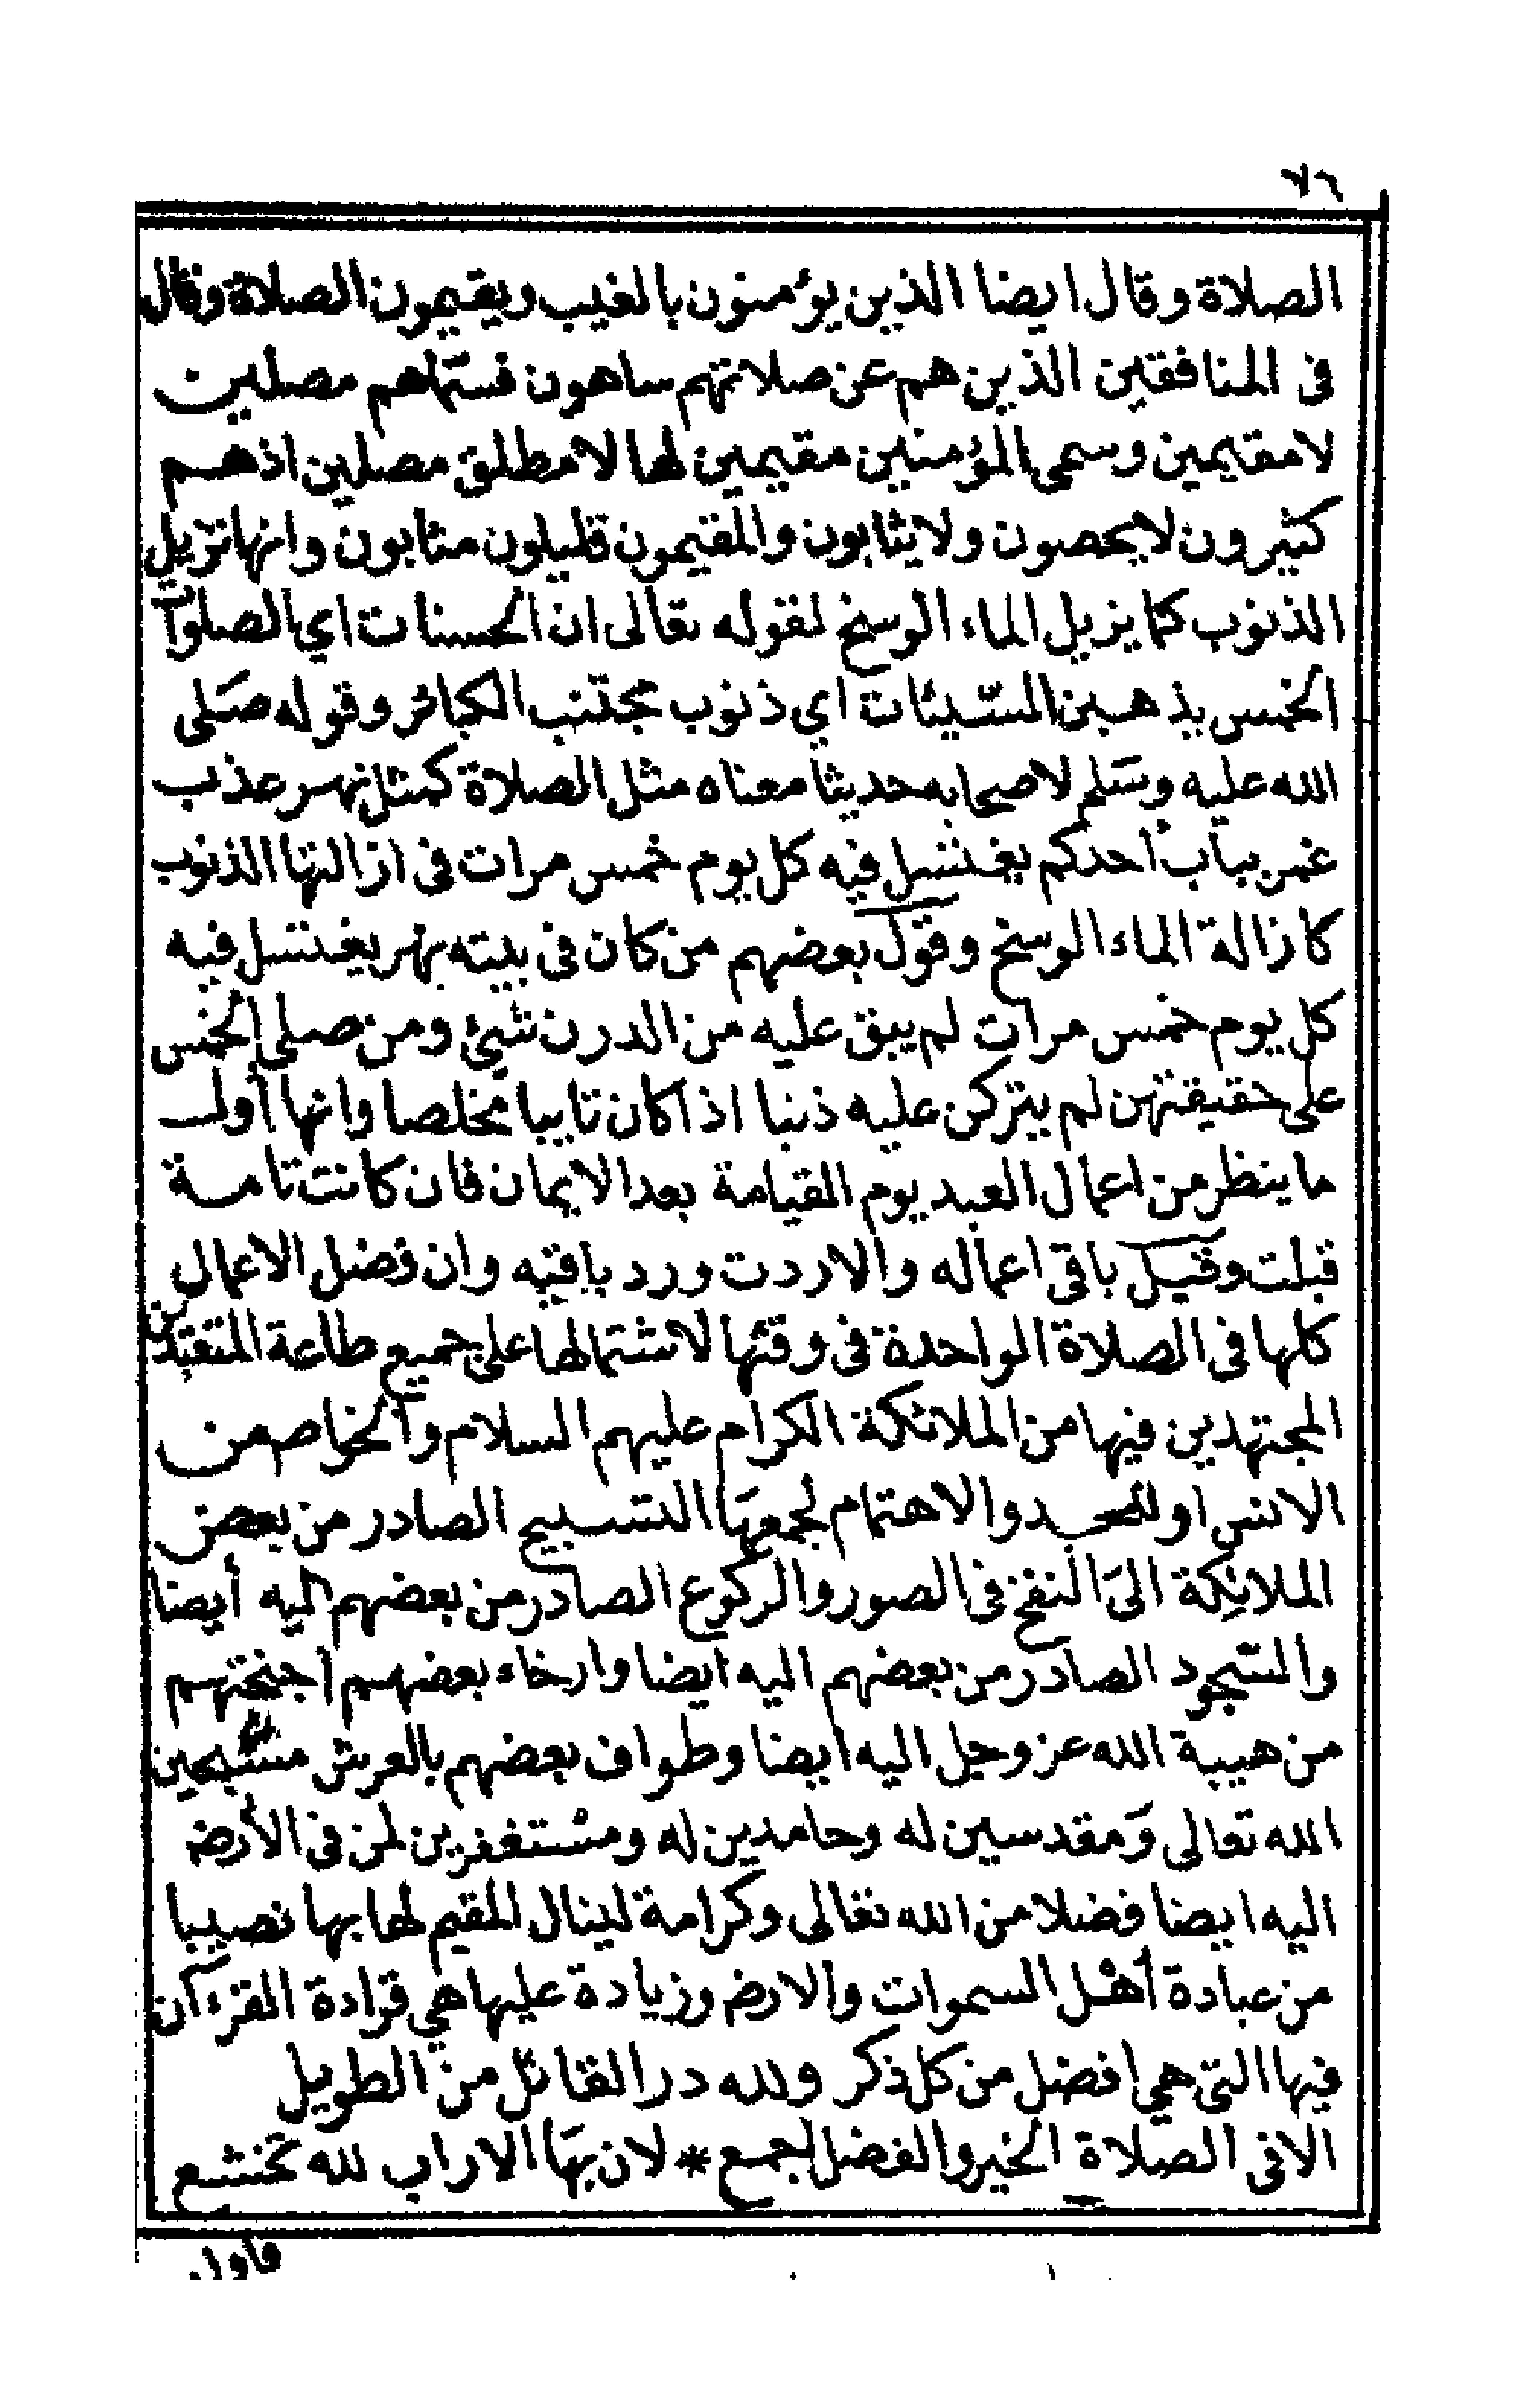 ٧٦
الصلاة وقال ايضا الذين يؤمنون بالغيب ويقيمون الصلاة وقال
فى المنافقين الذين هم عن صلاتهم ساهون فسماهم مصلين
لا مقيمين وسمى المؤمنين مقيمين لها لا مطلق مصلين اذ هم
كثيرون لا يحصون ولا يثابون والمقيمون قليلون مثابون وانها تزيل
الذنوب كما يزيل الماء الوسخ لقوله تعالى ان الحسنات اي الصلوات
الخمس يذهبن السّيئات اي ذنوب مجتنب الكبائر وقوله صَلى
الله عليه وسَلم لاصحابه حديثا معناه مثل الصلاة كمثل نهر عذب
غمر بباب احدكم يغتسل فيه كل يوم خمس مرات فى ازالتها الذنوب
كازالة الماء الوسخ وقول بعضهم من كان فى بيته نهر يغتسل فيه
كل يوم خمس مرات لم يبق عليه من الدرن شئ ومن صلى الخمس
على حقيقتهن لم يتركن عليه ذنبا اذا كان تايبا مخلصا وانها أول
ما ينظر من اعمال العبد يوم القيامة بعد الايمان فان كانت تامة
قبلت وقبل باقى اعماله والا ردت ورد باقيه وان فضل الاعمال
كلها فى الصلاة الواحدة فى وقتها لاشتمالها على جميع طاعة المتعبدين
المجتهدين فيها من الملائكة الكرام عليهم السلام والخواص من
الانس اولى الجد والاهتمام لجمعهَا التسبيح الصادر من بعض
الملائِكة الىَ النفخ فى الصور والركوع الصادر من بعضهم اليه أيضا
والسّجود الصادر من بعضهم اليه ايضا وارخاء بعضهم اجنحتهم
من هيبة الله عز وجل اليه ايضا وطواف بعضهم بالعرش مسَبحين
الله تعالى وَمقدسين له وحامدين له ومسْتغفرين لمن فى الأرض
اليه ايضا فضلا من الله تعالى وكرامة لينال المقيم لها بها نصيبا
من عبادة أهْل السموات والارض وزيادة عليها هي قراءة القرءآن
فيها التى هي افضل من كل ذكر ولله در القائل من الطويل
الا فى الصلاة الخير والفضل اجمع * لان بهَا الاراب لله تخشع
واول